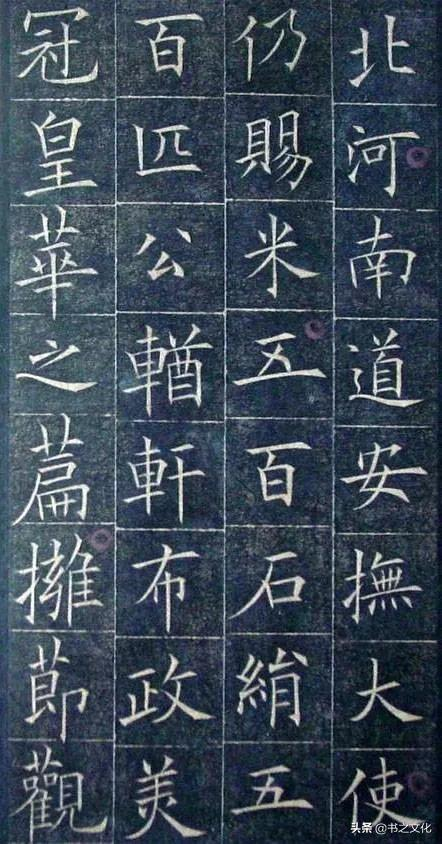 北河南道安撫大使
仍賜米五百石絹五
百匹公輶軒布政美
冠皇華之萹擁莭觀
头条 @书之文化